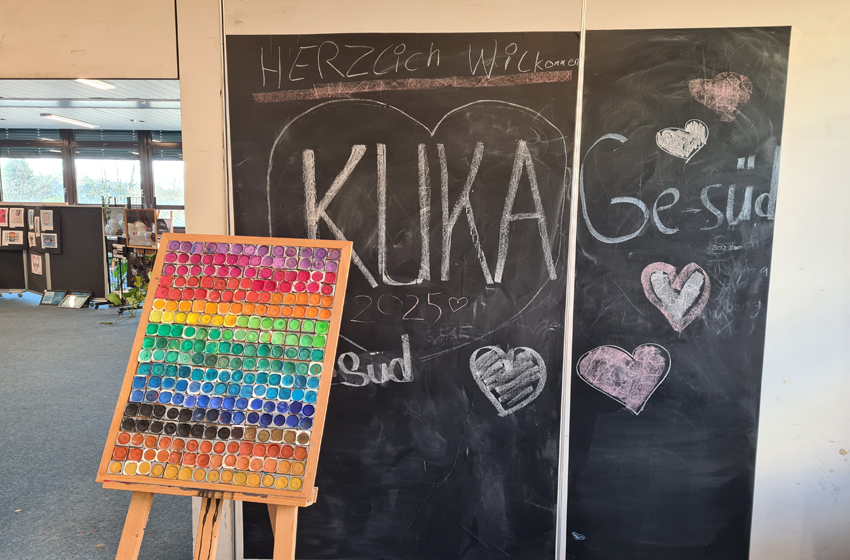 HERZLich Wilkommen
KUKA
2025
süd
Ge-süd
2025